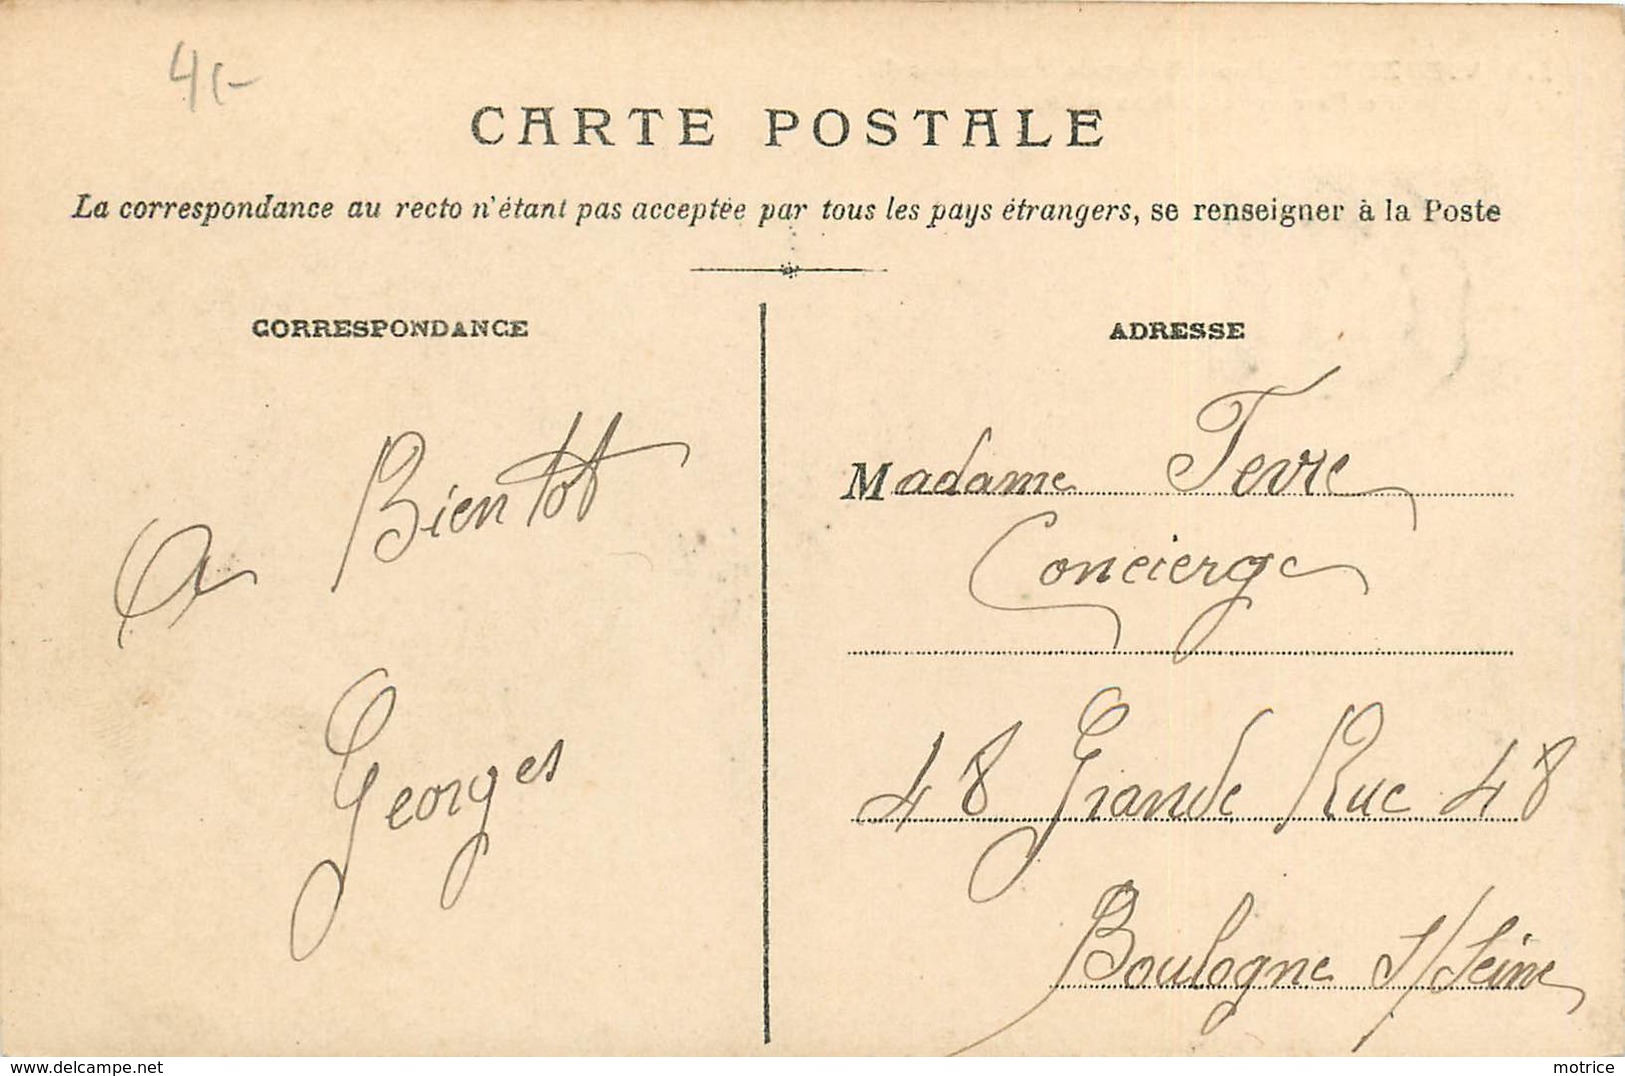 41-
CARTE POSTALE
La correspondance au recto n'étant pas acceptée par tous les pays étrangers, se renseigner à la Poste
CORRESPONDANCE
A Bientot
Georges
ADRESSE
Madame Fevre
Concierge
48 Grande Rue 48
Boulogne s/Seine
www.delcampe.net
motrice